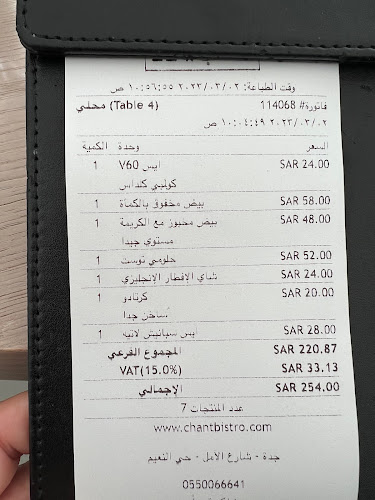 وقت الطباعة: ٢٠٢٣/٠٣/٠٢ ١٠:٥٦:٥٥ ص
فاتورة# 114068 محلي (Table 4)
٢٠٢٣/٠٣/٠٢ ١٠:٠٤:٤٩ ص
السعر وحدة الكمية
SAR 24.00 ايس V60 1
كولبي كنداس
SAR 58.00 بيض مخفوق بالكمأة 1
SAR 48.00 بيض مخبوز مع الكريمة 1
مستوي جيدا
SAR 52.00 حلومي توست 1
SAR 24.00 شاي الإفطار الإنجليزي 1
SAR 20.00 كرتادو 1
ساخن جدا
SAR 28.00 ايس سبانيش لاتيه 1
SAR 220.87 المجموع الفرعي
SAR 33.13 VAT(15.0%)
SAR 254.00 الإجمالي
عدد المنتجات 7
www.chantbistro.com
جدة - شارع الامل - حي النعيم
0550066641